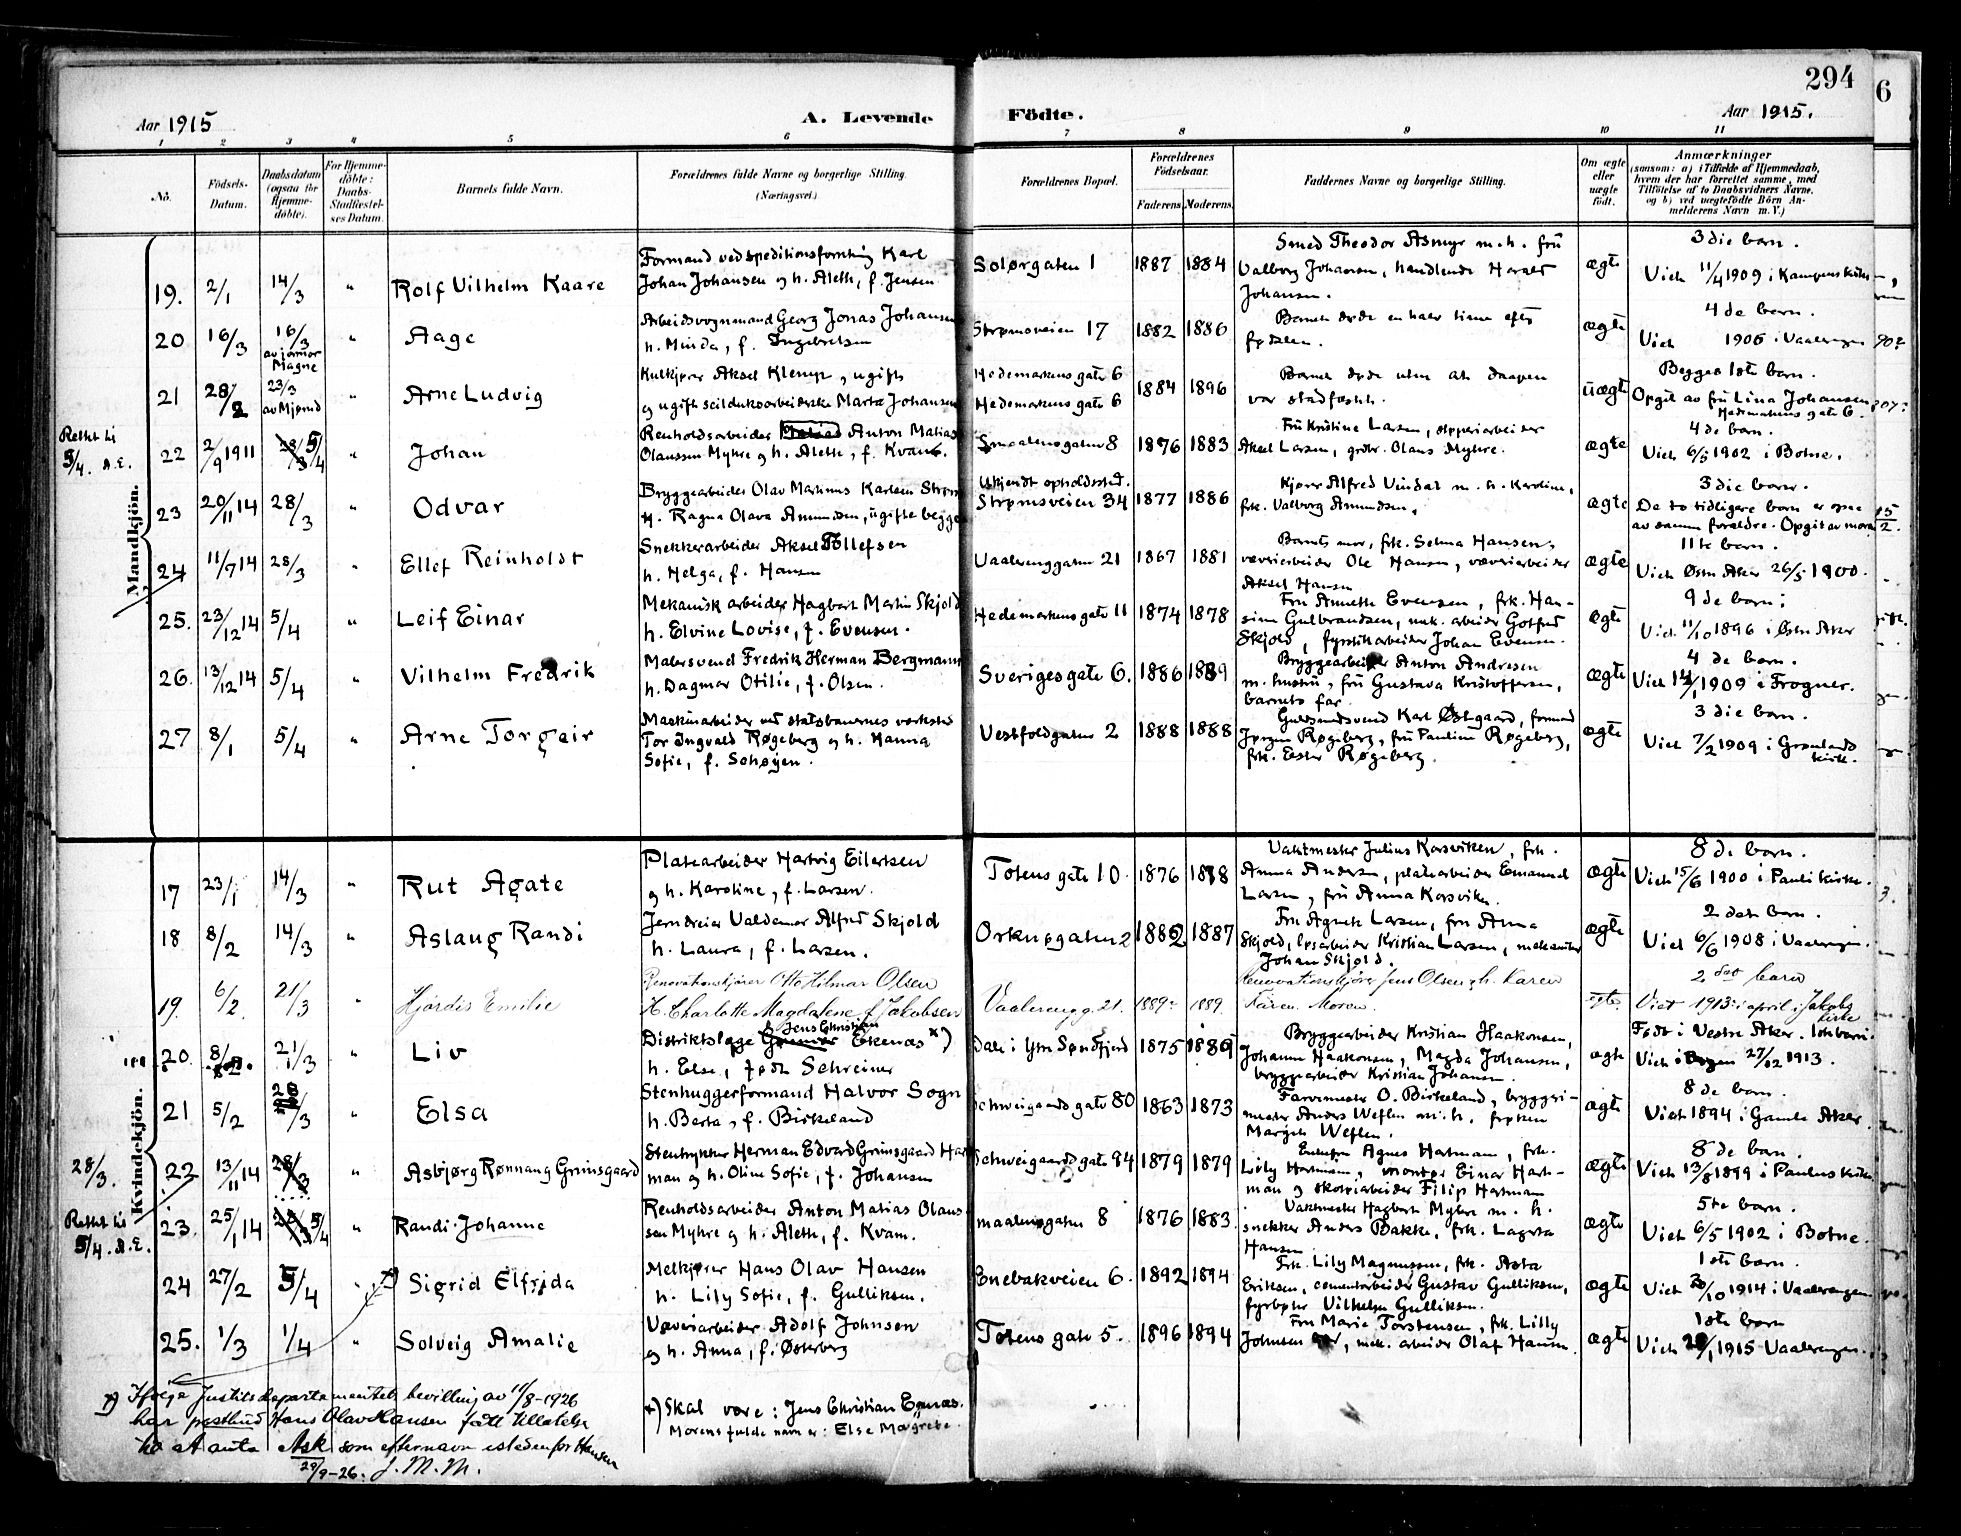 294
6
Aar 1915
A. Levende
Födte.
Aar 1915.
1 2 3 4 5 6 7 8 9 10 11
No.
Födsels-Datum.
Daabsdatum (ogsaa for Hjemme-döbte).
For Hjemme-döbte: Daabs-Stadfæstel-ses Datum.
Barnets fulde Navn.
Forældrenes fulde Navne og borgerlige Stilling.
(Næringsvei.)
Forældrenes Bopæl.
Forældrenes Födselsaar.
Faderens. Moderens.
Faddernes Navne og borgerlige Stilling.
Om ægte eller uægte födt.
Anmærkninger
(saasom: a) i Tilfælde af Hjemmedaab, hvem der har forrettet samme, med Tilföielse af to Daabsvidners Navne, og b) ved uægtefödte Börn An-melderens Navn m. V.)
Mandkjön.
19. 2/1 14/3 " Rolf Vilhelm Kaare
Formand ved speditionsforretning Karl
Johan Johansen og h. Aleth, f. Jensen
Solørgaten 1 1887 1884
Smed Theodor Asmyr m. h. frü
Valborg Johansen, handlende Harald
Johansen.
ægte
3die barn.
Viet 11/4 1909 i Kampens kirke
20 16/3 16/3 av jormor Magne " Aage
Arbeidsvognmand Georg Jonas Johansen
h. Minda, f. Ingebretsen
Strømsveien 17 1882 1886
Barnet døde en halv time efter
fødselen.
ægte
4de barn.
Viet 1906 i Vaalerengen
21 28/2 23/3 av Mjørud " Arne Ludvig
Kulkjører Aksel Klemp, ugift
og ugift seildukarbeiderske Marta Johansen
Hedemarkens gate 6
Hedemarkens gate 6
1884 1896
Barnet døde uten at daapen
var stadfæstet.
uægte
Begges 1ste barn.
Opgit av frü Lina Johansen
Hedemarkens gate 6.
Rettet til
5/4. A.E.
22 2/9 1911 28/3 5/4 " Johan
Renholdsarbeider Anton Matias
Olaussen Myhre og h. Aleth, f. Kvam.
Smaalensgaten 8 1876 1883
Frü Kristine Larsen, støperiarbeider
Aksel Larsen, grdbr. Olaus Myhre.
ægte
4de barn.
Viet 6/5 1902 i Botne.
23 20/11 14 28/3 " Odvar
Bryggearbeider Olav Martinus Karlsen Strøm
og Ragna Olava Amundsen, ugifte begge
Ukjendt opholdssted.
Strømsveien 34 1877 1886
Kjører Alfred Vindal m. h. Karoline,
frk. Valborg Amundsen.
ægte
3die barn.
De to tidligere barn er ogsaa
av samme forældre. Opgit av moren
24 11/7 14 28/3 " Ellef Reinholdt
Snekkerarbeider Aksel Tollefsen
h. Helga, f. Hansen
Vaalerenggaten 21 1867 1881
Barnets mor, frk. Selma Hansen,
væveriarbeider Ole Hansen, væveriarbeider
Aksel Hansen
ægte
11te barn.
Viet Østre Aker 26/5 1900.
25. 23/12 14 5/4 " Leif Einar
Mekanisk arbeider Hagbart Martin Skjold
h. Elvine Lovise, f. Evensen.
Hedemarkens gate 11 1874 1878
Fru Annette Evensen, frk. Han-
sine Gulbrandsen, mek. arbeider Gotfred
Skjold, fyrstikarbeider Johan Evensen.
ægte
9de barn;
Viet 11/10 1896 i Østre Aker
26. 13/12 14 5/4 " Vilhelm Fredrik
Malersvend Fredrik Herman Bergmann
h. Dagmar Otilie, f. Olsen.
Sveriges gate 6. 1886 1889
Bryggearbeider Anton Andresen
m. hustru, frü Gustava Kristoffersen,
barnets far.
ægte
4de barn.
Viet 14/1 1909 i Frogner.
27 8/1 5/4 " Arne Torgeir
Maskinarbeider ved statsbanernes verksted
Tor Ingvald Røgeberg og h. Hanna
Sofie, f. Schøyen.
Vestfoldgaten 2 1888 1888
Guldsmedsvend Karl Østgaard, formand
Jørgen Røgeberg, frü Pauline Røgeberg,
frk. Ester Røgeberg.
ægte
3die barn.
Viet 7/2 1909 i Grønlands
kirke.
Kvindekjön.
17 23/1 14/3 " Rut Agate
Platearbeider Hartvig Eilertsen
og h. Karoline, f. Larsen.
Totens gate 10. 1876 1878
Vaktmester Julius Korsviken, frk.
Anna Andersen, platearbeider Emanuel
Larsen, frü Anna Korsviken.
ægte
8de barn.
Viet 15/6 1900 i Pauli kirke.
18 8/2 14/3 " Aslaug Randi
Jerndreier Valdemar Alfred Skjold
h. Laura, f. Larsen.
Orknøgaten 2 1882 1887
Fru Agnete Larsen, fru Anna
Skjold, løsarbeider Kristian Larsen, mekaniker
Johan Skjold.
ægte
2det barn.
Viet 6/6 1908 i Vaalerengen.
19. 6/2 21/3 " Hjørdis Emilie
Renovationskjører Otto Hilmar Olsen
H. Charlotte Magdalene f. Jakobsen
Vaalereng g. 21. 1889 1889
Renovationskjører Jens Olsen og h. Karen
Faren. Moren.
egte
2det barn
Viet 1913 i april i Jakobs
kirke
20. 8/2 21/3 " Liv
Distriktslæge Jens Christian Ekenæs *)
h. Else, født Schreiner
Dale i Ytre Søndfjord 1875 1889
Bryggearbeider Kristian Haakonsen,
Johanne Haakonsen, Magda Johansen,
bryggearbeider Kristian Johansen.
ægte
Født i Vestre Aker. 1ste barn.
Viet i 27/12 1913.
21 5/2 28/3 " Elsa
Stenhuggerformand Halvor Sogn
h. Berta, f. Birkeland
Schweigaards gate 80 1863 1873
Farvermester O. Birkeland, bryggeri-
mester Anders Weflen m. h. frøken
Margit Weflen.
ægte
8de barn.
Viet 1894 i Gamle Aker.
28/3.
22 13/11 14 28/3 " Asbjørg Rønnaug Grimsgaard
Stentrykker Herman Edvard Grimsgaard Hart-
man og h. Oline Sofie, f. Johansen
Schweigaards gate 84 1879 1879
Enkefru Agnes Hartmann, frk.
Lily Hartmann, montør Einar Hart-
man og skotøiarbeider Filip Hartman
ægte
8de barn.
Viet 13/8 1899 i Paulus kirke
Rettet til
5/4. A.E.
23. 25/1 14 28/3 5/4 " Randi Johanne
Renholdsarbeider Anton Matias Olaus-
sen Myhre og h. Aleth, f. Kvam.
maalensgaten 8 1876 1883.
Vaktmester Hagbart Myhre m. h.
snekker Anders Bakke, frk. Lagerta
Hansen
ægte
5te barn.
Viet 6/5 1902 i Botne.
24 27/2 5/4 " Sigrid Elfrida
Melkjører Hans Olav Hansen
h. Lily Sofie, f. Gulliksen.
Enebakveien 6. 1892 1894
Frk. Lily Magnussen, frk. Asta
Eriksen, cementarbeider Gustav Gulliksen,
fyrbøter Vilhelm Gulliksen.
ægte
1ste barn.
Viet 30/10 1914 i Vaalerengen
25. 1/3 1/4 " Solveig Amalie
Væveriarbeider Adolf Johnsen
og h. Anna, f. Østerberg
Totens gate 5. 1896 1894
Fru Marie Torstensen, frk. Lilly
Johnsen, mek. arbeider Olaf Hansen.
ægte
1ste barn
Viet 28/1 1915 Vaalerengen.
x) Ifølge Justitsdepartementets bevilling av 11/8-1926
har postbud Hans Olav Hansen fått tillatelse
til at anta Ask som efternavn istedenfor Hansen
29/9-26. J. M. M.
*) Skal være: Jens Christian Egenæs.
Morens fulde navn er: Else Margrete